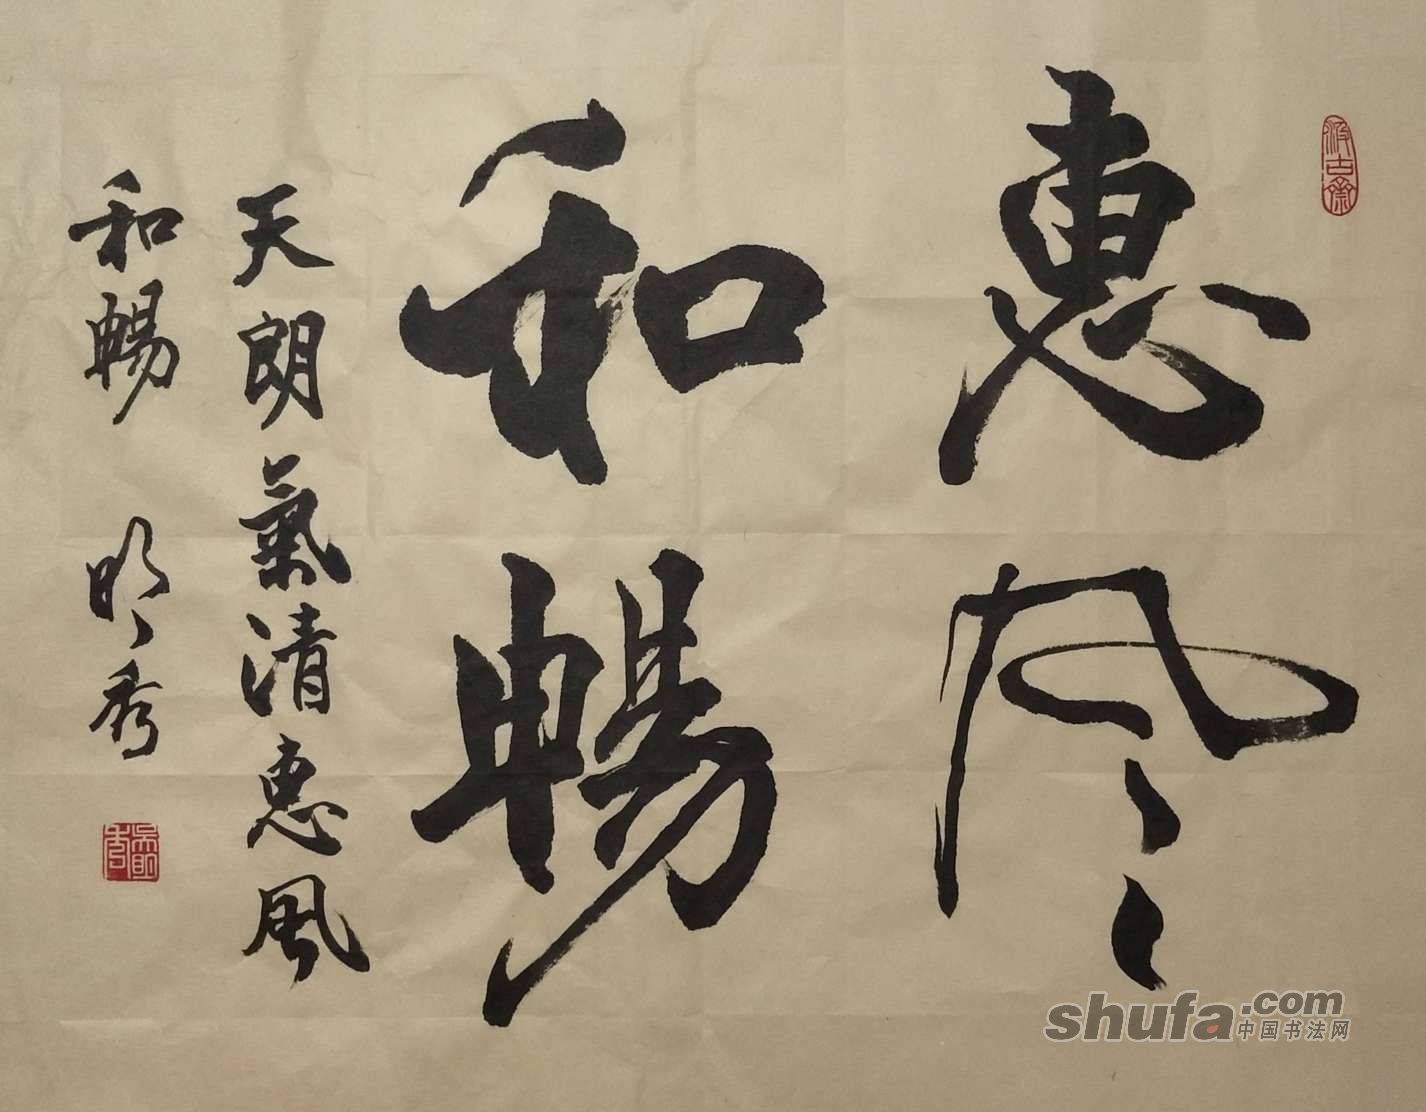 惠風
和暢
天朗氣清惠風
和暢 明秀
汲古齋
shufa.com
中国书法网